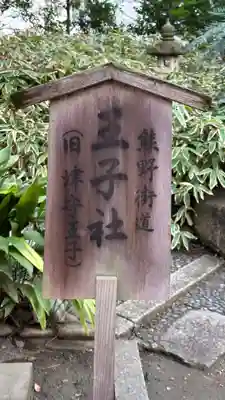 熊野街道
王子社
(旧津守王子)